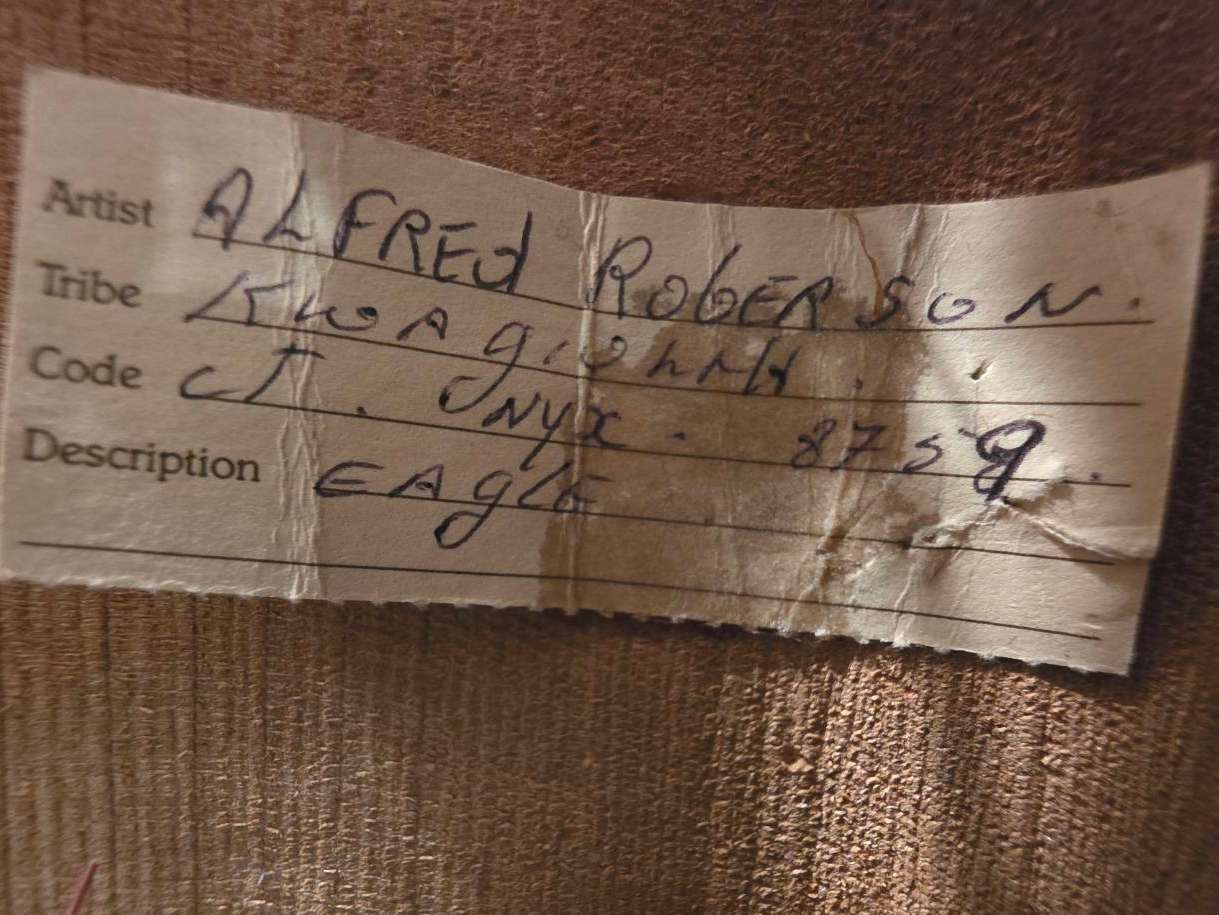 Artist ALFREd RobERSON.
Tribe KwAgiohNH.
Code CJ. ONyx. 8759.
Description EAglE